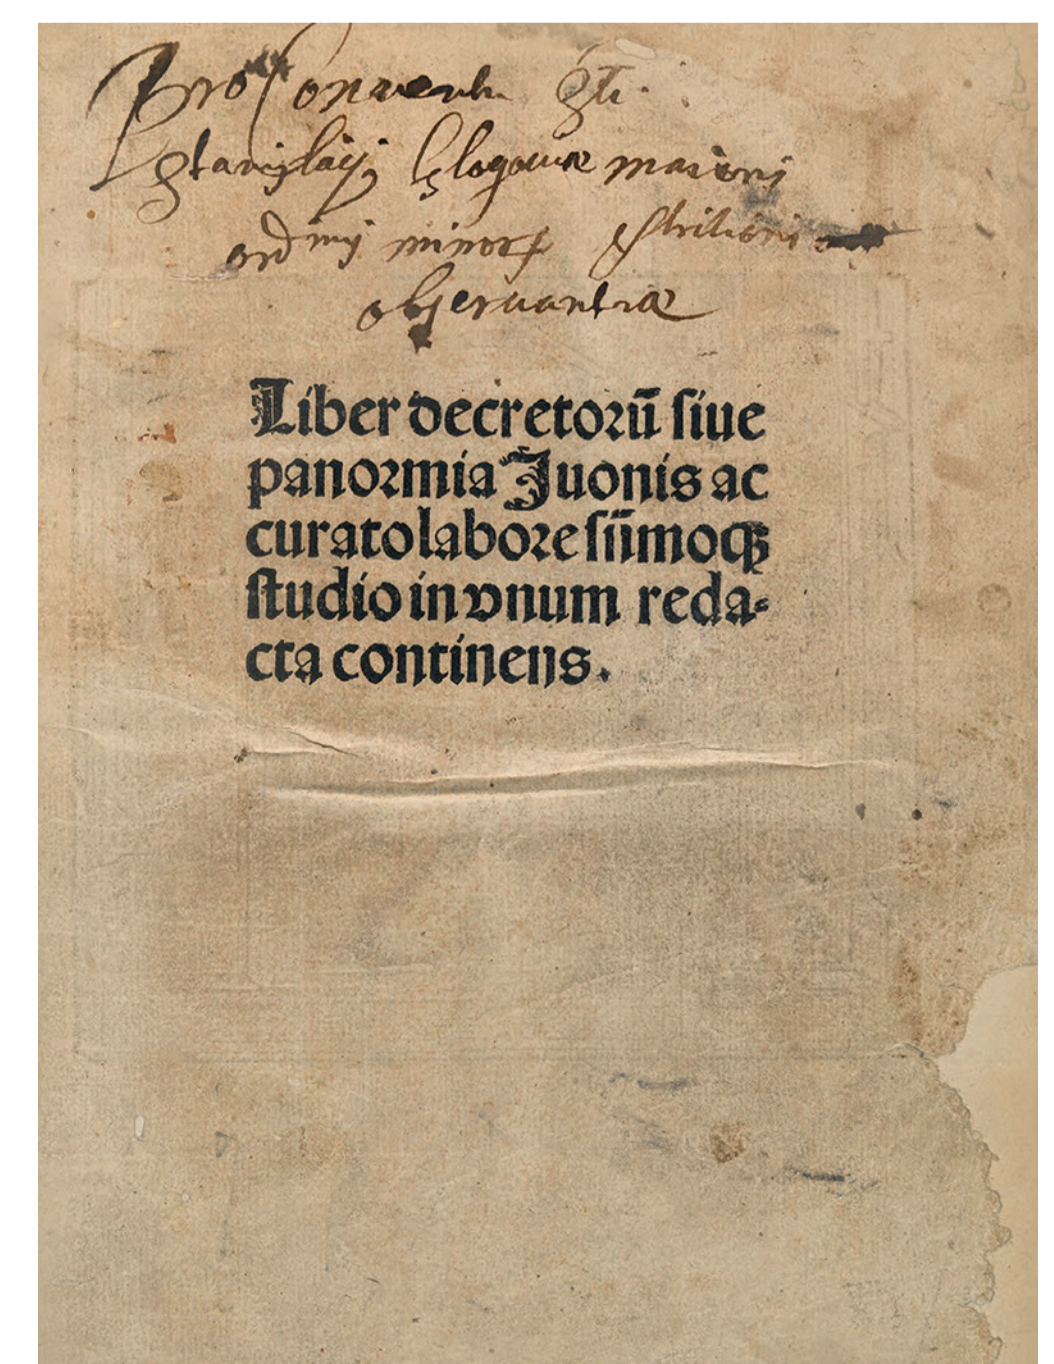 Pro Conventu Sti.
Stanislaij Glogoviae maioris
ordinij minorum strictioris
observantiae
Liber decretorū ſiue
panormia Iuonis ac
curato labore ſūmoqꝫ
ſtudio in vnum reda⸗
cta continens.